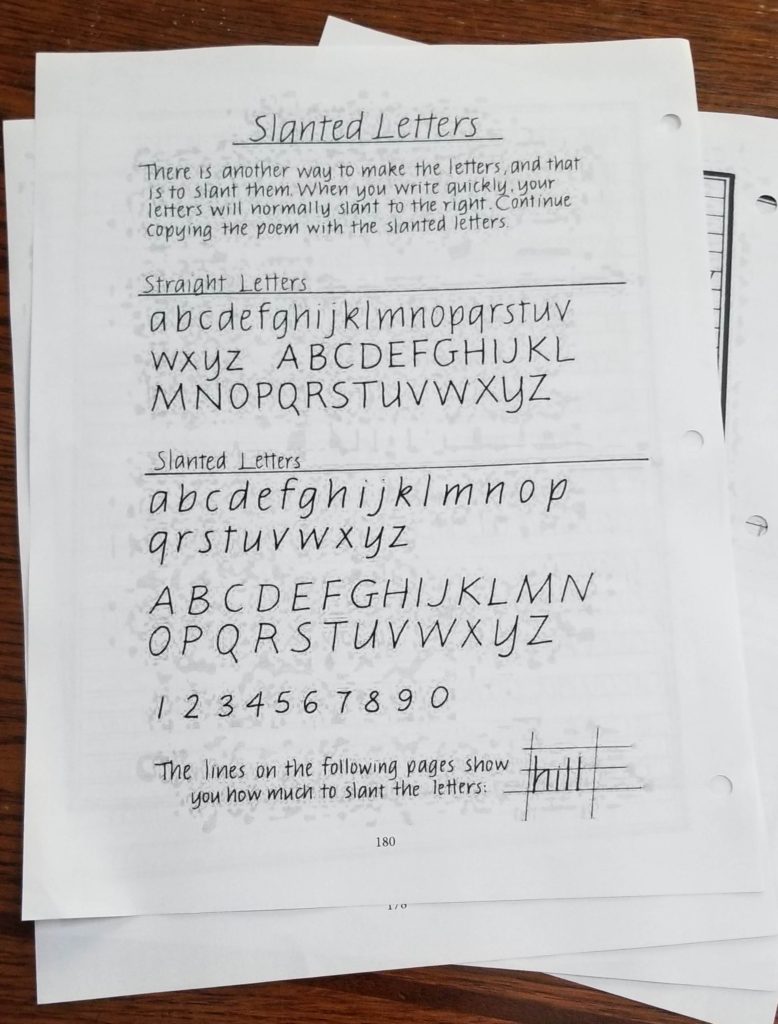 Slanted Letters
There is another way to make the letters, and that
is to slant them. When you write quickly, your
letters will normally slant to the right. Continue
copying the poem with the slanted letters.
Straight Letters
abcdefghijklmnopqrstuv
wxyz ABCDEFGHIJKL
MNOPQRSTUVWXYZ
Slanted Letters
abcdefghijklmnop
qrstuvwxyz
ABCDEFGHIJKLMN
OPQRSTUVWXYZ
1 2 3 4 5 6 7 8 9 0
The lines on the following pages show
you how much to slant the letters:
hill
180